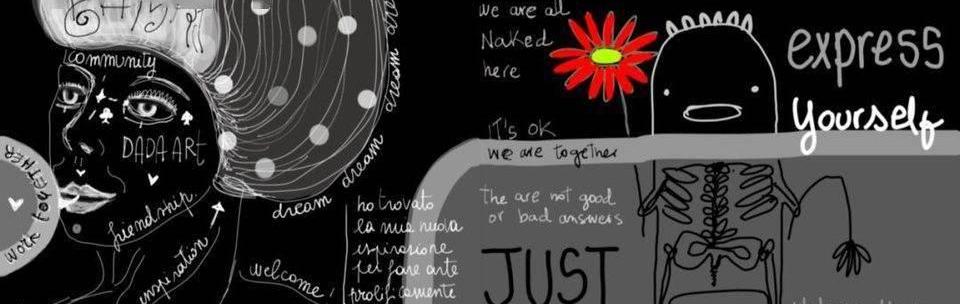 community
DADA ART
WORK TOGETHER
friendship
inspiration
dream
dream
dream
welcome
ho trovato
la mia nuova
ispirazione
per fare arte
prolificamente
we are all
Naked
here
IT'S OK
we are together
the are not good
or bad answers
JUST
express
yourself